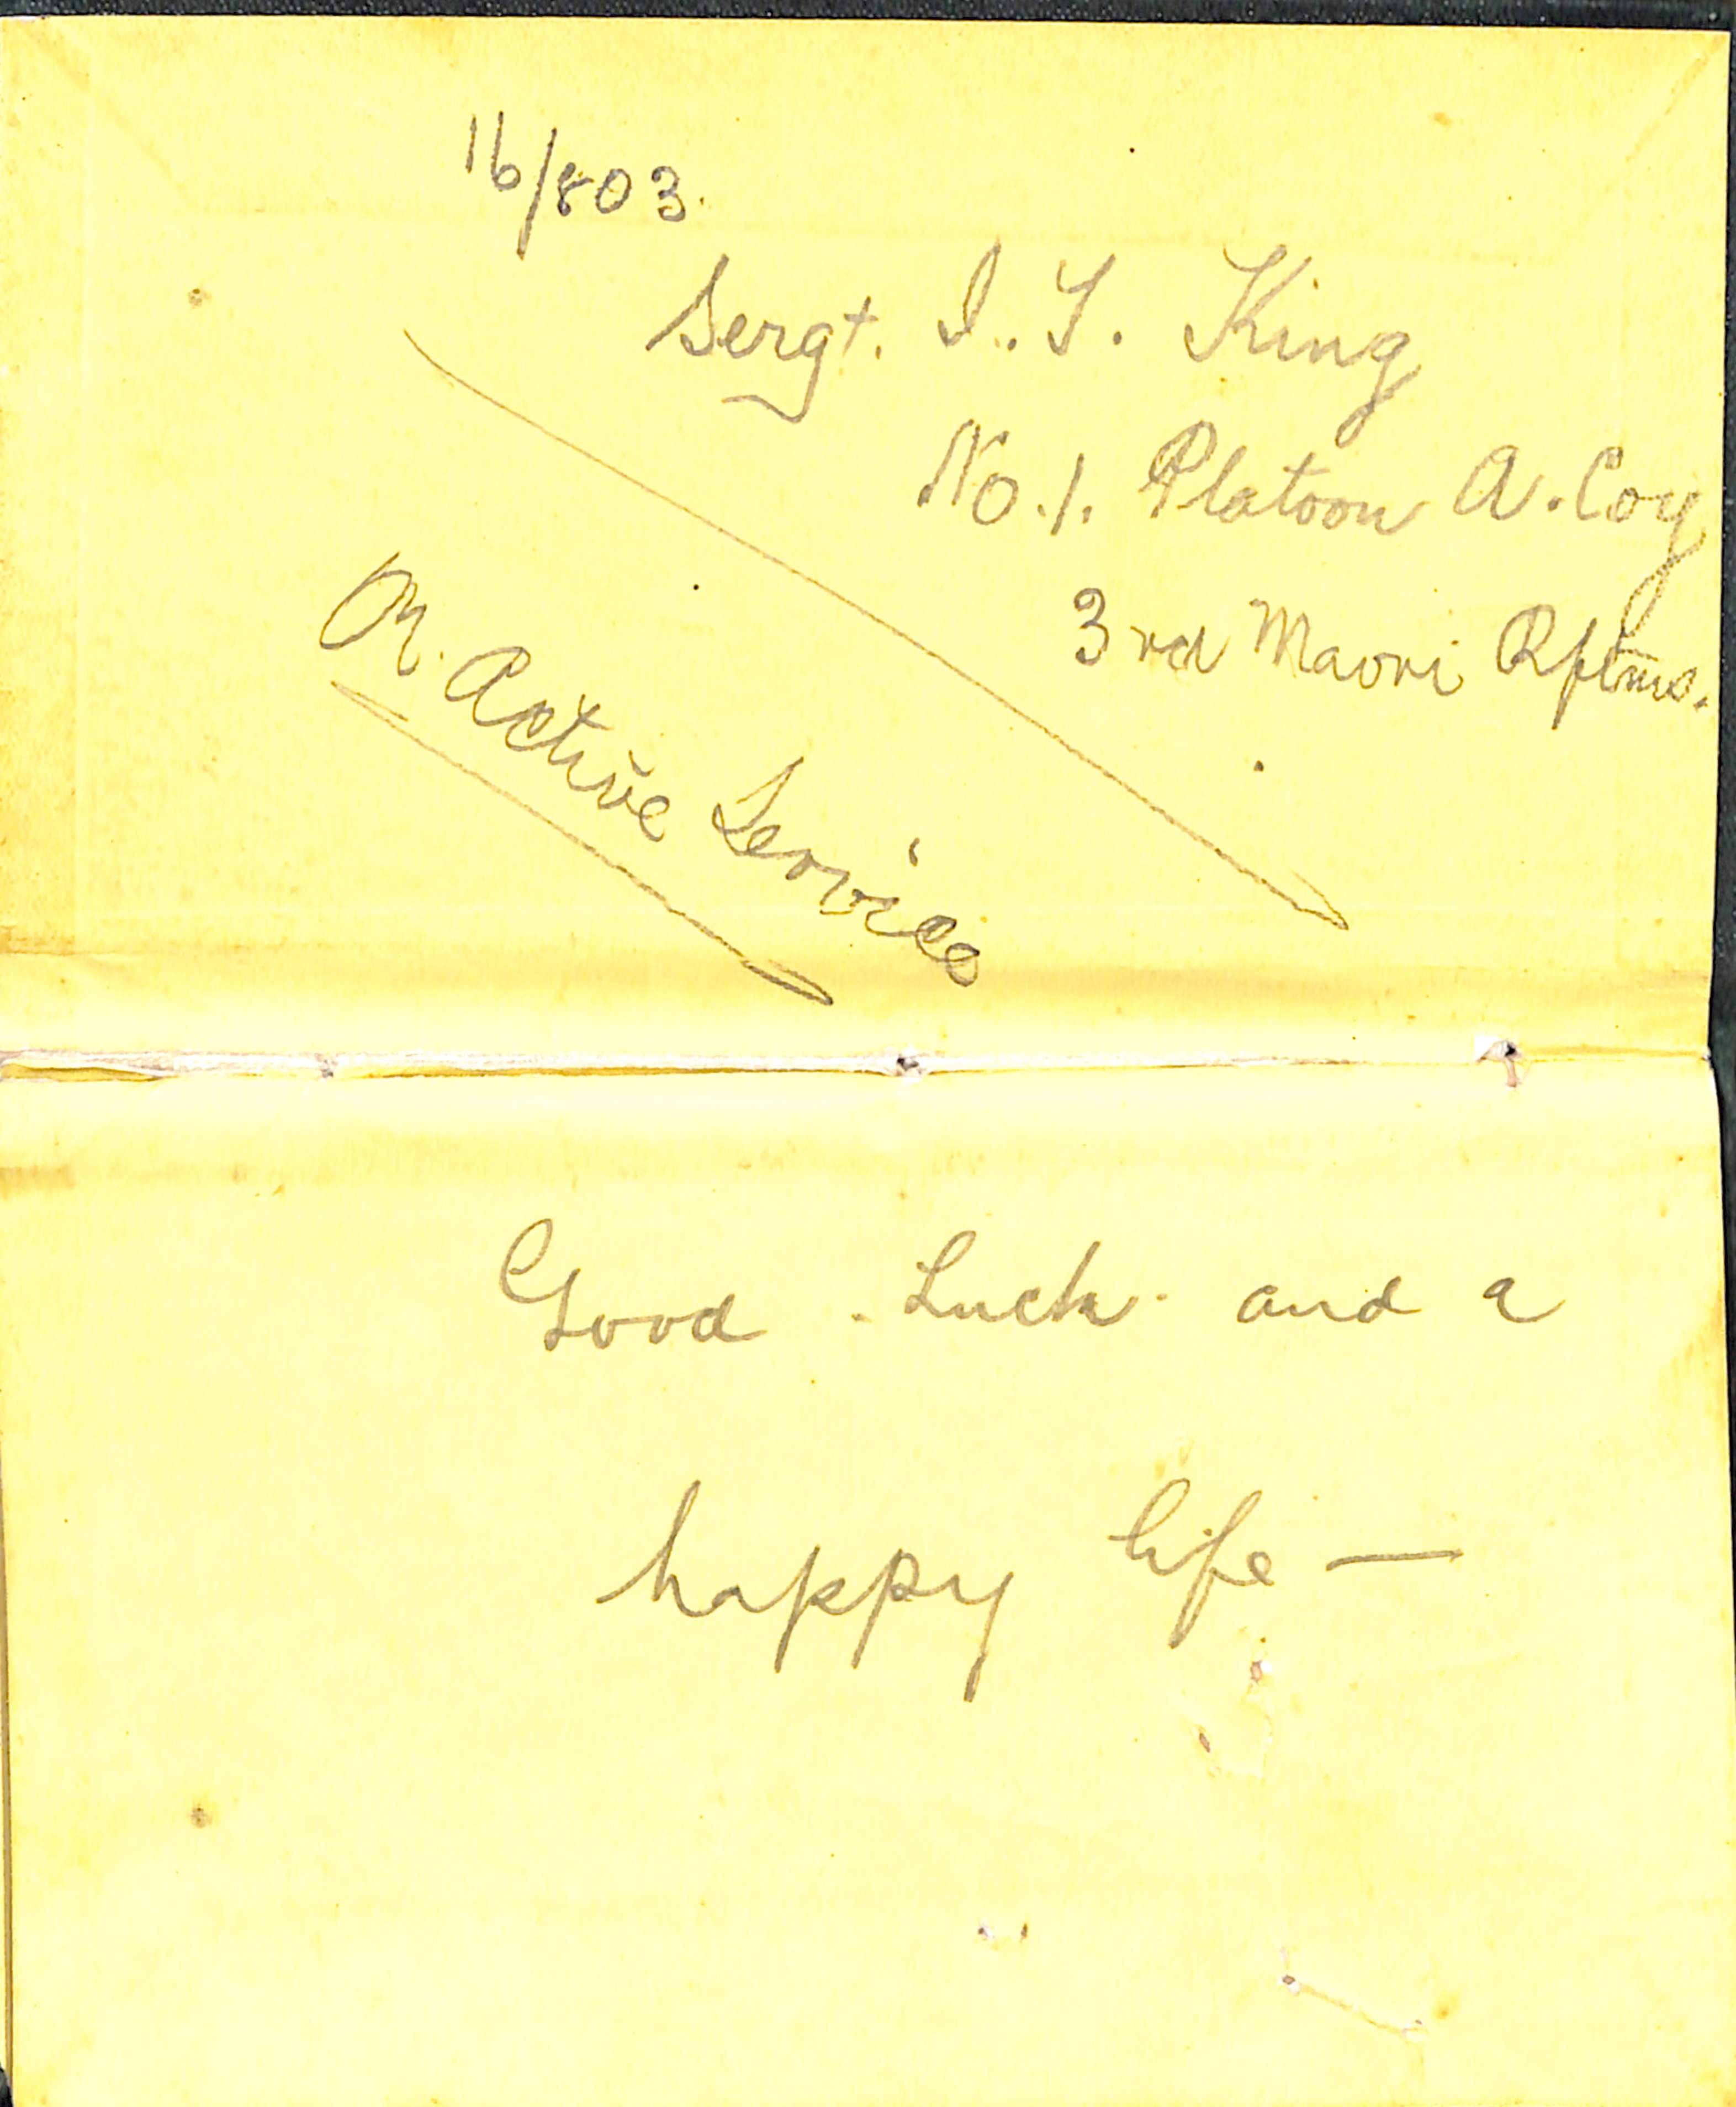 16/803.
Sergt. I. T. King
No. 1. Platoon A. Coy
3rd Maori Rftms.
On Active Service
Good Luck and a
happy life —